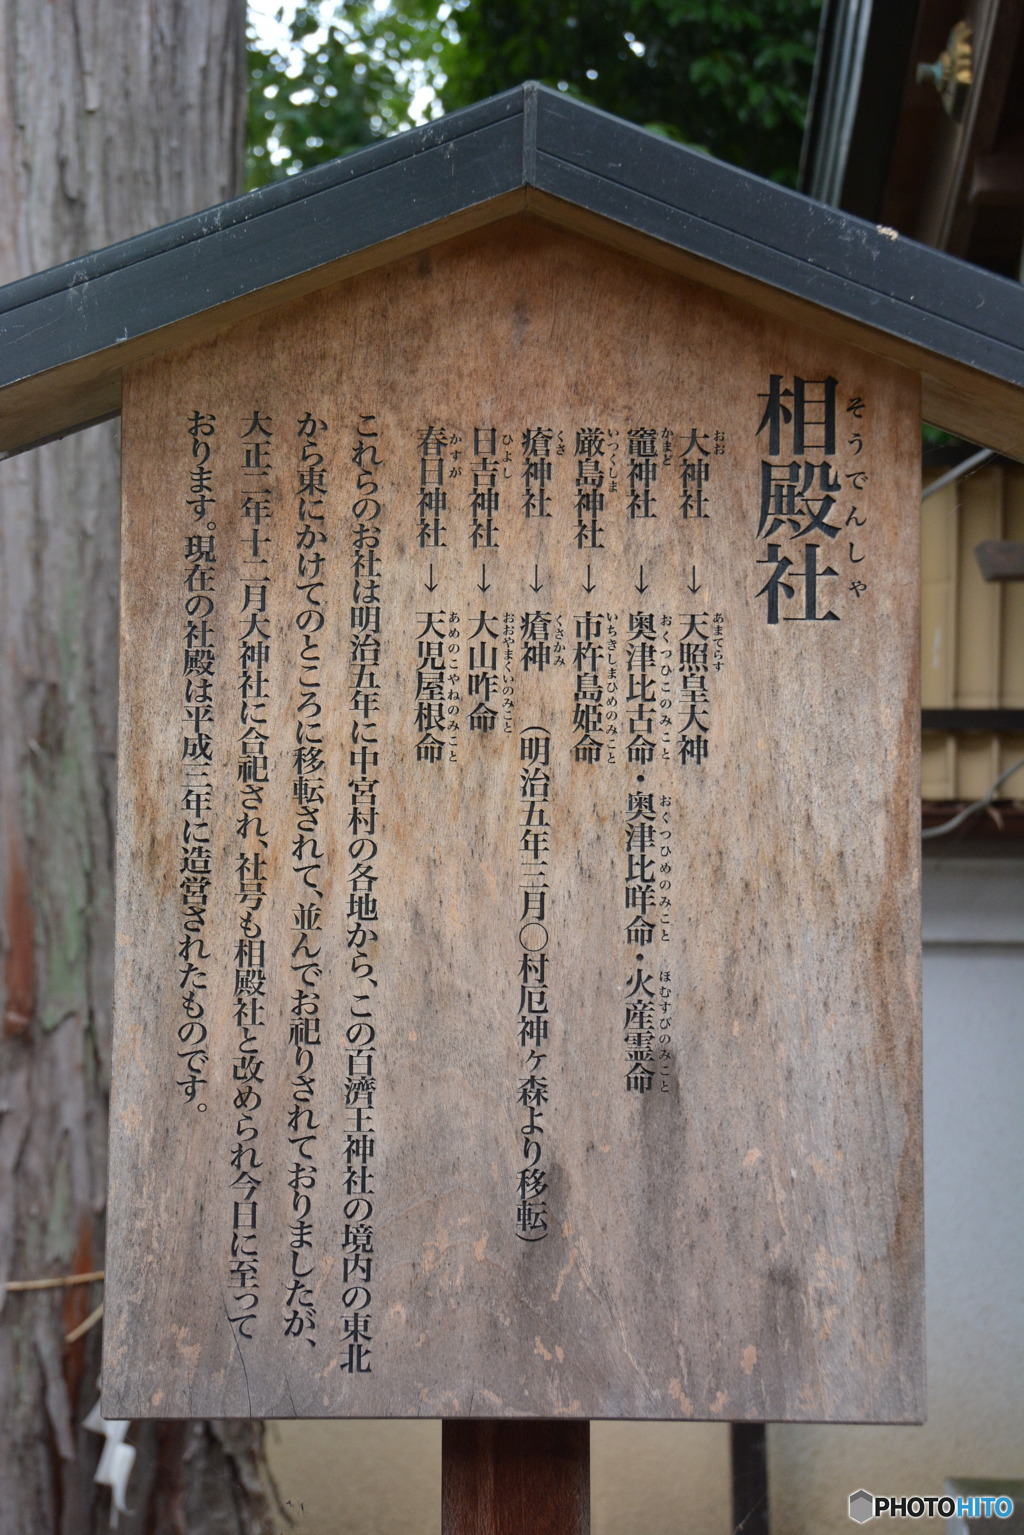 相殿社
そうでんしゃ
大神社 → 天照皇大神
おお あまてらす
竈神社 → 奥津比古命・奥津比咩命・火産霊命
かまど おくつひこのみこと おくつひめのみこと ほむすびのみこと
厳島神社 → 市杵島姫命
いつくしま いちきしまひめのみこと
瘡神社 → 瘡神 (明治五年三月〇村厄神ヶ森より移転)
くさ くさかみ
日吉神社 → 大山咋命
ひよし おおやまくいのみこと
春日神社 → 天児屋根命
かすが あめのこやねのみこと
これらのお社は明治五年に中宮村の各地から、この百濟王神社の境内の東北
から東にかけてのところに移転されて、並んでお祀りされておりましたが、
大正二年十二月大神社に合祀され、社号も相殿社と改められ今日に至って
おります。現在の社殿は平成三年に造営されたものです。
PHOTOHITO